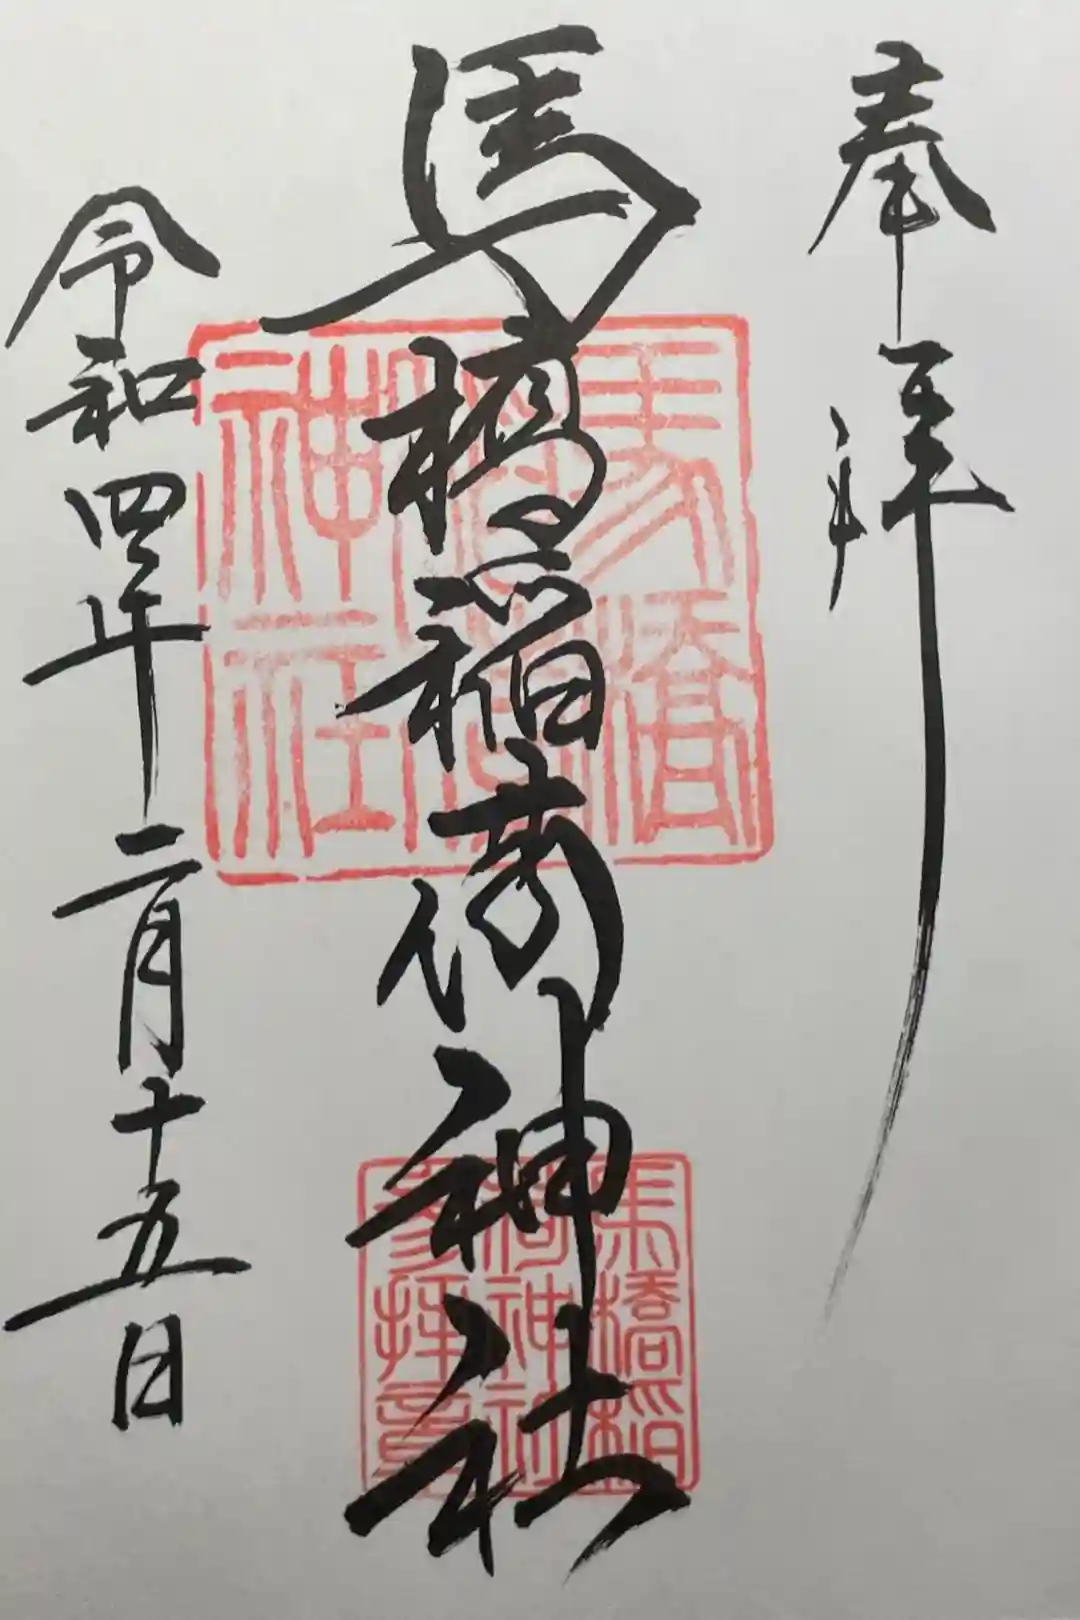 奉拝
馬橋稲荷神社
令和四年二月十五日
馬橋
稲荷
神社
馬橋稲
荷神社
参拝章